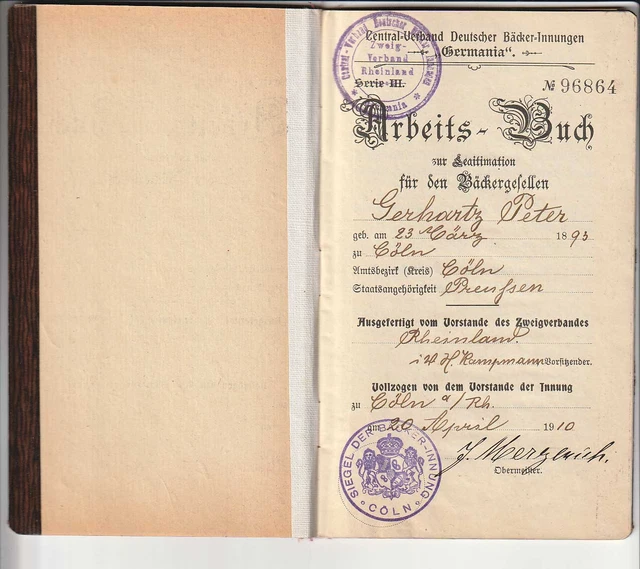 Central-Verband Deutscher Bäcker-Innungen
„Germania“.
Central-Verband Deutscher Bäcker-Innungen
Zweig-
Verband
Rheinland
Germania
Serie III.
№ 96864
Arbeits-Buch
zur Legitimation
für den Bäckergesellen
Gerhartz Peter
geb. am 23 März 1893
zu Cöln
Amtsbezirk (Kreis) Cöln
Staatsangehörigkeit Preussen
Ausgefertigt vom Vorstande des Zweigverbandes
Rheinland.
i.V. H. Kampmann Vorsitzender.
Vollzogen von dem Vorstande der Innung
zu Cöln a/Rh.
am 20 April 1910
Obermeister.
SIEGEL DER BÄCKER-INNUNG
CÖLN